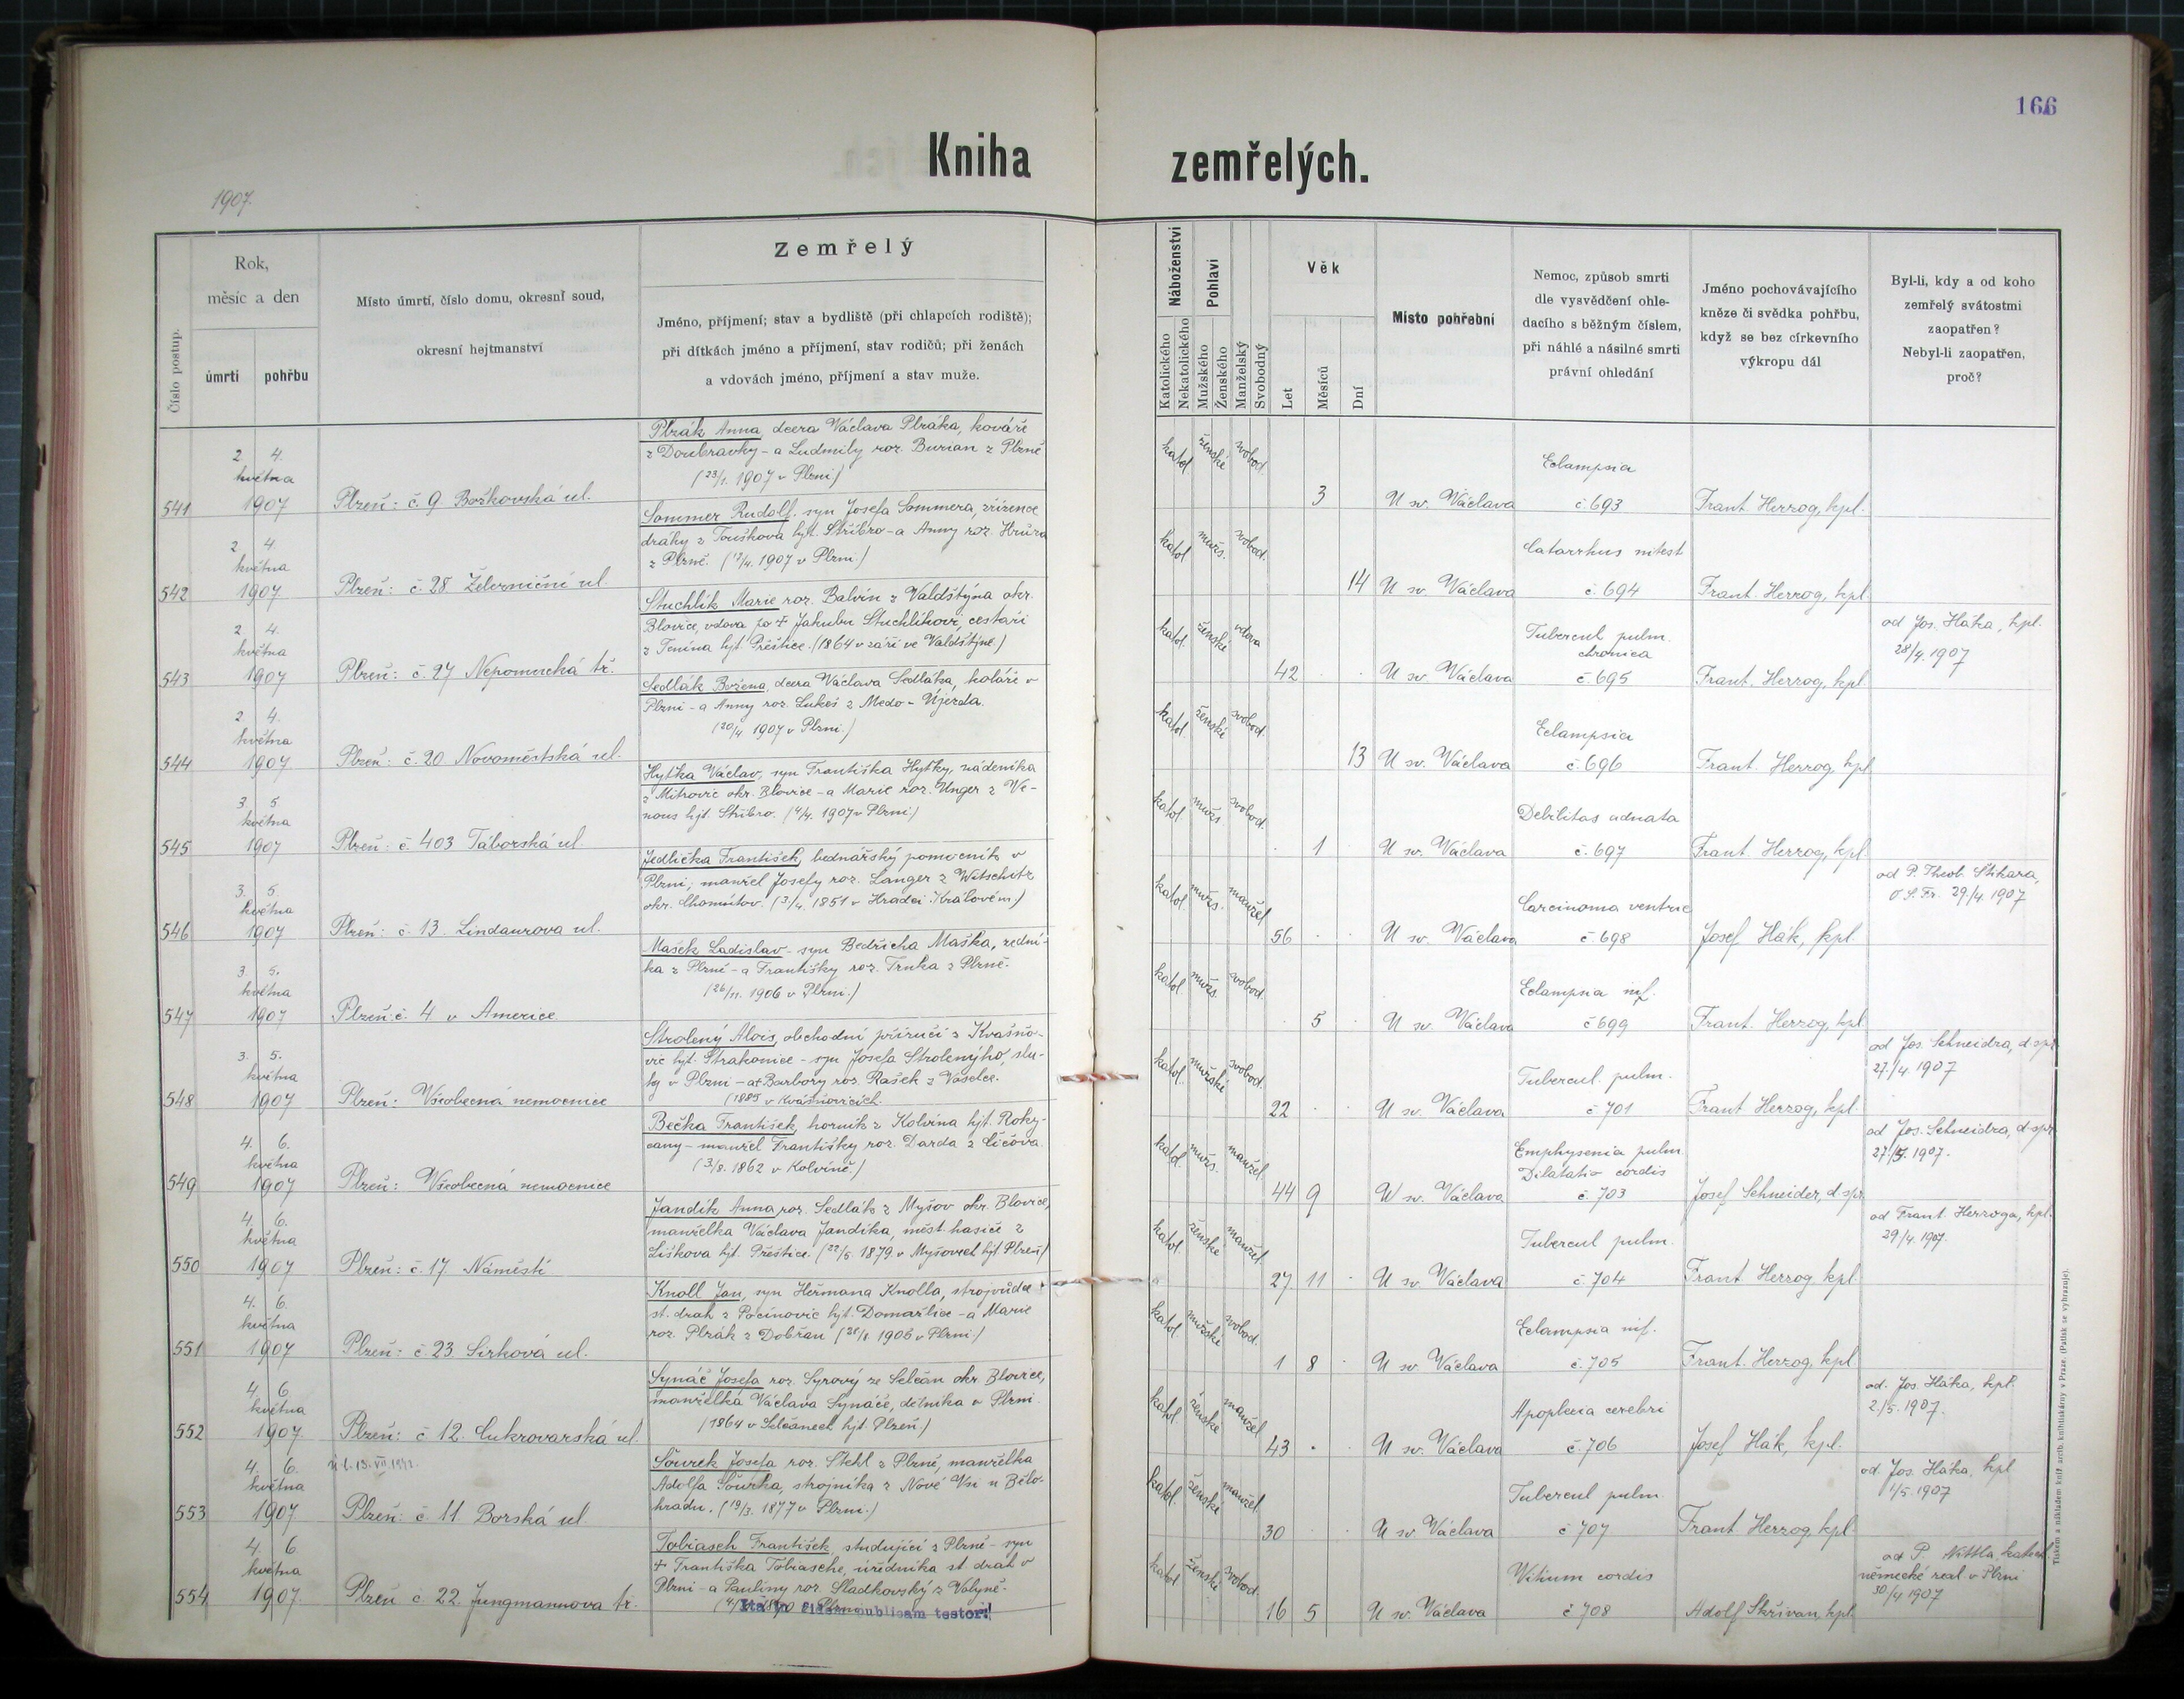 166
Kniha zemřelých.
1907.
Číslo postup.
Rok,
měsíc a den
úmrtí
pohřbu
Místo úmrtí, číslo domu, okresní soud,
okresní hejtmanství
Zemřelý
Jméno, příjmení; stav a bydliště (při chlapcích rodiště);
při dítkách jméno a příjmení, stav rodičů; při ženách
a vdovách jméno, příjmení a stav muže.
Náboženství
Katolického
Nekatolického
Pohlaví
Mužského
Ženského
Manželský
Svobodný
Věk
Let
Měsíců
Dní
Místo pohřební
Nemoc, způsob smrti
dle vysvědčení ohle-
dacího s běžným číslem,
při náhlé a násilné smrti
právní ohledání
Jméno pochovávajícího
kněze či svědka pohřbu,
když se bez církevního
výkropu dál
Byl-li, kdy a od koho
zemřelý svátostmi
zaopatřen?
Nebyl-li zaopatřen,
proč?
541
2 4.
května
1907
Plzeň: č. 9 Božkovská ul.
Plzák Anna, dcera Václava Plzáka, kováře
z Doubravky - a Ludmily roz. Burian z Plzně
(23/1. 1907 v Plzni)
katol ženské svobod.
3
U sv. Václava
Eclampsia
č. 693
Frant. Herzog, kpl.
542
2 4.
května
1907
Plzeň: č. 28 Železniční ul.
Sommer Rudolf. syn Josefa Sommera, zřízence
dráhy z Touškova hjt. Stříbro - a Anny roz. Hrůza
z Plzně. (17/4. 1907 v Plzni.)
katol mužs. svobod.
14
U sv. Václava
Catarrhus intest
č. 694
Frant. Herzog, kpl.
543
2 4.
května
1907
Plzeň: č. 27 Nepomucká tř.
Stuchlík Marie roz. Balvín z Valdštýna okr.
Blovice, vdova po + Jakubu Stuchlíkovi, cestáři
z Tenína hjt. Přeštice. (1864 v září ve Valdštýně.)
katol. ženské vdova
42
U sv. Václava
Tubercul pulm.
chronica
č. 695
Frant. Herzog, kpl.
od Jos. Háka, kpl.
28/4. 1907
544
2. 4.
května
1907
Plzeň: č. 20 Novoměstská ul.
Sedlák Božena, dcera Václava Sedláka, koláře v
Plzni - a Anny roz. Lukeš z Medo-Újezda.
(20/4 1907 v Plzni.)
katol ženské svobod.
13
U sv. Václava
Eclampsia
č. 696
Frant. Herzog, kpl
545
3. 5
května
1907
Plzeň: č. 403 Táborská ul.
Hyťka Václav, syn Františka Hyťky, nádeníka
z Mitrovic okr. Blovice - a Marie roz. Unger z We-
nous hjt. Stříbro. (4/4. 1907 v Plzni.)
katol mužs. svobod.
1
U sv. Václava
Debilitas adnata
č. 697
Frant. Herzog, kpl.
546
3. 5.
května
1907
Plzeň: č. 13. Lindaurova ul.
Jedlička František, bednářský pomocník v
Plzni; manžel Josefy roz. Langer z Witschitz
okr. Chomútov. (3/4. 1851 v Hradci Královém.)
katol. mužs. manžel
56
U sv. Václava
Carcinoma ventric
č. 698
Josef Hák, kpl.
od P. Theob.
O. S. Fr. 29./4. 1907
547
3. 5.
května
1907
Plzeň: č. 4 v Americe
Mašek Ladislav - syn Bedřicha Maška, zední-
ka z Plzně - a Františky roz. Trnka z Plzně.
(26/11. 1906 v Plzni.)
katol mužs. svobod.
5
U sv. Václava
Eclampsia inf.
č 699
Frant. Herzog, kpl
548
3. 5.
května
1907
Plzeň: Všeobecná nemocnice
Strolený Alois, obchodní příručí z Kvášňo-
vic hjt. Strakonice - syn Josefa Strolenýho, slu-
hy v Plzni - a + Barbory roz. Rašek z
(1885 v Kvášňovicích.
katol. mužské svobod.
22
U sv. Václava
Tubercul. pulm.
č. 701
Frant Herzog, kpl.
od Jos. Schneidra, d. spr.
27./4 1907
549
4. 6.
května
1907
Plzeň: Všeobecná nemocnice
Bečka František, horník z Kolvína hjt. Roky-
cany - manžel Františky roz. Darda z Číčova.
(3/8. 1862 v Kolvíně.)
katol. mužs. manžel.
44 9
U sv. Václava
Emphysema pulm.
Dilatatio cordis
č. 703
Josef Schneider, d. spr.
od Jos. Schneidra, d. spr.
27./5. 1907.
550
4. 6.
května
1907
Plzeň: č. 17 Náměstí
Jandík Anna, roz. Sedlák z Myšov okr. Blovice,
manželka Václava Jandíka, měst. hasiče z
Liškova hjt. Přeštice. (22/5. 1879. v Myšovech hjt Plzeň)
katol. ženské manžel.
27. 11
U sv. Václava
Tubercul pulm.
č. 704
Frant Herzog, kpl.
od Frant. Herzoga, kpl.
29/4. 1907.
551
4. 6.
května
1907
Plzeň: č. 23 Sirková ul.
Knoll Jan, syn Heřmana Knolla, strojvůdce
st. drah z Pocínovic hjt. Domažlice - a Marie
roz. Plzák z Dobřan (28/8 1905 v Plzni.)
katol. mužské svobod.
1 8
U sv. Václava
Eclampsia inf.
č. 705
Frant. Herzog, kpl.
552
4. 6
května
1907.
Plzeň: č. 12. Cukrovarská ul.
Synáč Josefa roz. Syrový ze Selčan okr. Blovice,
manželka Václava Synáče, dělníka v Plzni.
(1864 v Selčanech hjt. Plzeň)
katol. ženské manžel
43
U sv. Václava
Apoplexia cerebri
č. 706
Josef Hák, kpl.
od. Jos. Háka, kpl.
2./5. 1907.
553
4. 6.
května
1907.
ú. l. 13. VII. 1942.
Plzeň: č 11 Borská ul
Šourek Josefa roz. Stehl z Plzně, manželka
Adolfa Šourka, strojníka z Nové Vsi u Bělo-
hradu. (19/3. 1877 v Plzni.)
katol. ženské manžel.
30
U sv Václava
Tubercul pulm.
č 707
Frant Herzog, kpl
od. Jos. Háka, kpl
1/5. 1907
554
4. 6.
května
1907.
Plzeň č. 22. Jungmannova tř.
Tobiasch František, studující z Plzně - syn
+ Františka Tobiasche, úředníka st. drah v
Plzni - a Pauliny roz. Sladkovský z Volyně.
Ita in fidem publicam testor!
katol ženské svobod.
16 5
U sv. Václava
Vitium cordis
č 708
Adolf Skřivan, kpl
od P. Nittla, katech.
německé real v Plzni
30/4 1907
Tiskem a nákladem kníž. arcib. knihtiskárny v Praze. (Patisk se vyhrazuje).